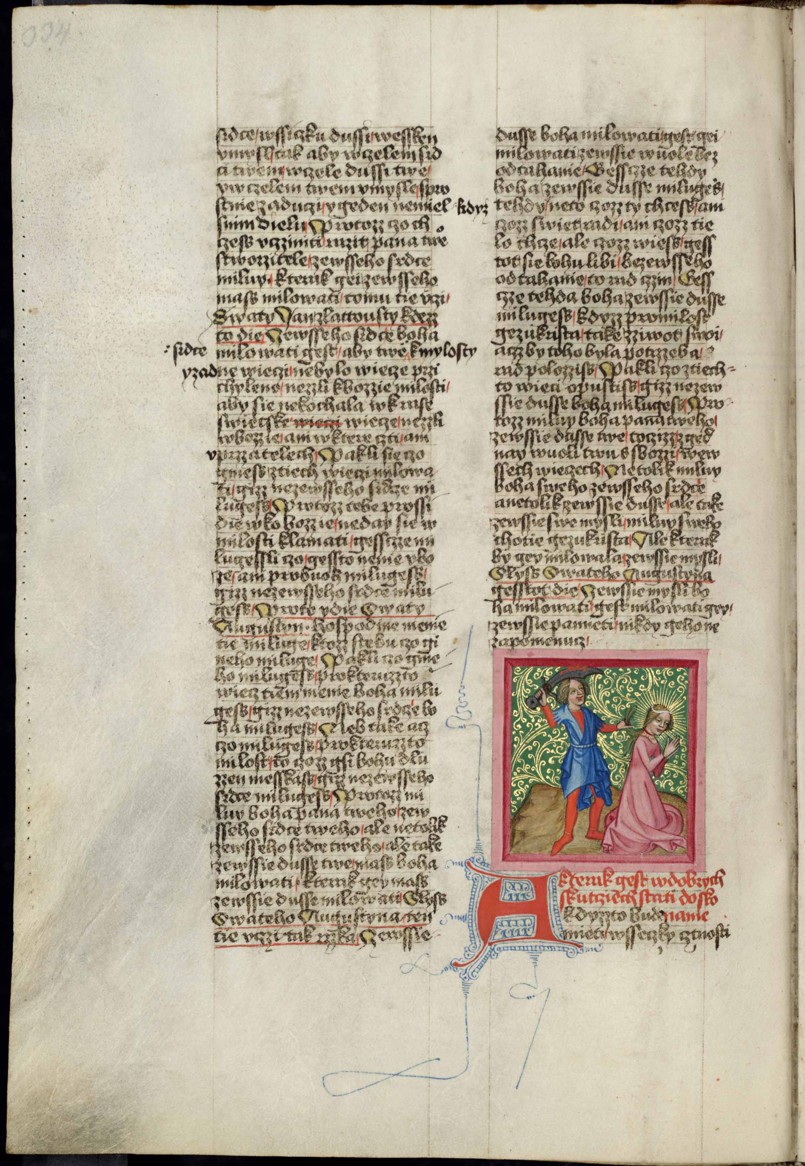 334
srdce wssiczku dussi wessken
vmysl tak aby wczelem srd
ci twem wczele dussi twe
yw czelem twem vmysle spro
stnie zaduczi y geden nemiel kdyz
snim dielu Protoz czoch
czess vcziniti ruzit pana twe
stworzitele zewsseho srdce
miluy kterak gei zewsseho
mass milowati tomu tie vczi
Swaty Janzlattousty kdezz
to die Zewsseho srdce boha
srdce milowati gest aby twe kmylosty
yzadne wieczi nebylo wiecze przi
chyleno nezzli kbozzie milosti
aby sie nekochala wkrase
swietske wieczi wiecze nezzli
wbozzie ani wktere czti ani
vprzatelech Pakli sie czo
gmess ztiech wieczi milowa
ti gizz nezewsseho srdce mi
lugess Protoz tebe prossi
die wko bozzie neday sie w
milosti klamati gesstzze mi
lugessli czo gessto nenie vbo
ze ani proboh milugess
gizz nezewsseho srdce milu
gess Proto ydie Swaty
Augustyn Hospodine menie
tie miluge ktoz stebu czo gi
neho miluge Pakli czo gine
ho milugess prokteruzzto
wiecz tiem menie boha milu
gess gizz nezewsseho srdcze bo
ha milugess Neb take acz
czo milugess prokteruzzto
milost to czozz gsi bohu dlu
zzen messkass gizz nezewsseho
srdce milugess Protoz mi
luy boha pana tweho zew
sseho srdce tweho ale netolik
zewsseho srdce tweho ale take
zewssie dusse twe mass boha
milowati kterak gey mass
zewssie dusse milowati Slyss
Swateho Augustyna ten
tie vczi tak rzka Zewssie
dusse boha milowati gest gei
milowati zewssie wuole bez
odtahanie Gesstzze tehdy
boha zewssie dusse milugess
tehdy neto czozz ty chcess ani
czozz swiet radi ani czozz tie
lo chcze ale czozz wiess gess
tot sie bohu libi bezewsseho
odtahanie to rad czzin Gess
czze tehda boha zewssie dusse
milugess kdyzz promilost
gezukrista take zziwot swoi
aczby toho byla potrzeba
rad polozziss Pakli czo ztiech
to wieci opustiss gizz nezew
ssie dusse boha milugess Pro
tozz miluy boha pana tweho
zewssie dusse twe tocizz zged
nay wuoli twu s bozzi wew
ssech wieczech Netolik miluy
boha sweho zewsseho srdce
anetolik zewssie dusse ale take
zewssie swe mysli miluy sweho
chotie gezukrista Ale kterak
by gey milowala zewssie mysli
Slyss Swateho Augustyna
gesstot die Zewssie mysli bo
ha milowati gest milowati gey
zewssie pamieti nikdy geho ne
zapomenucz
A kterak gest wdobrych
skutziech stati dosko
Kdyzzto budess ānie
mieti wsseczky cztnosti